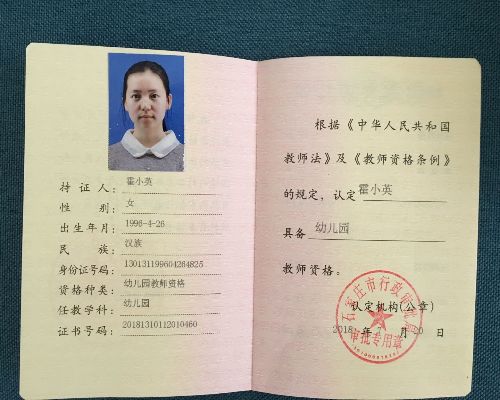 持证人： 霍小英
性别： 女
出生年月： 1996-4-26
民族： 汉族
身份证号码： 130131199604264825
资格种类： 幼儿园教师资格
任教学科： 幼儿园
证书号码： 20181310112010460
根据《中华人民共和国
教师法》及《教师资格条例》
的规定，认定 霍小英
具备 幼儿园
教师资格。
认定机构(公章)
2018 年 月 日
石家庄市行政审批局
审批专用章